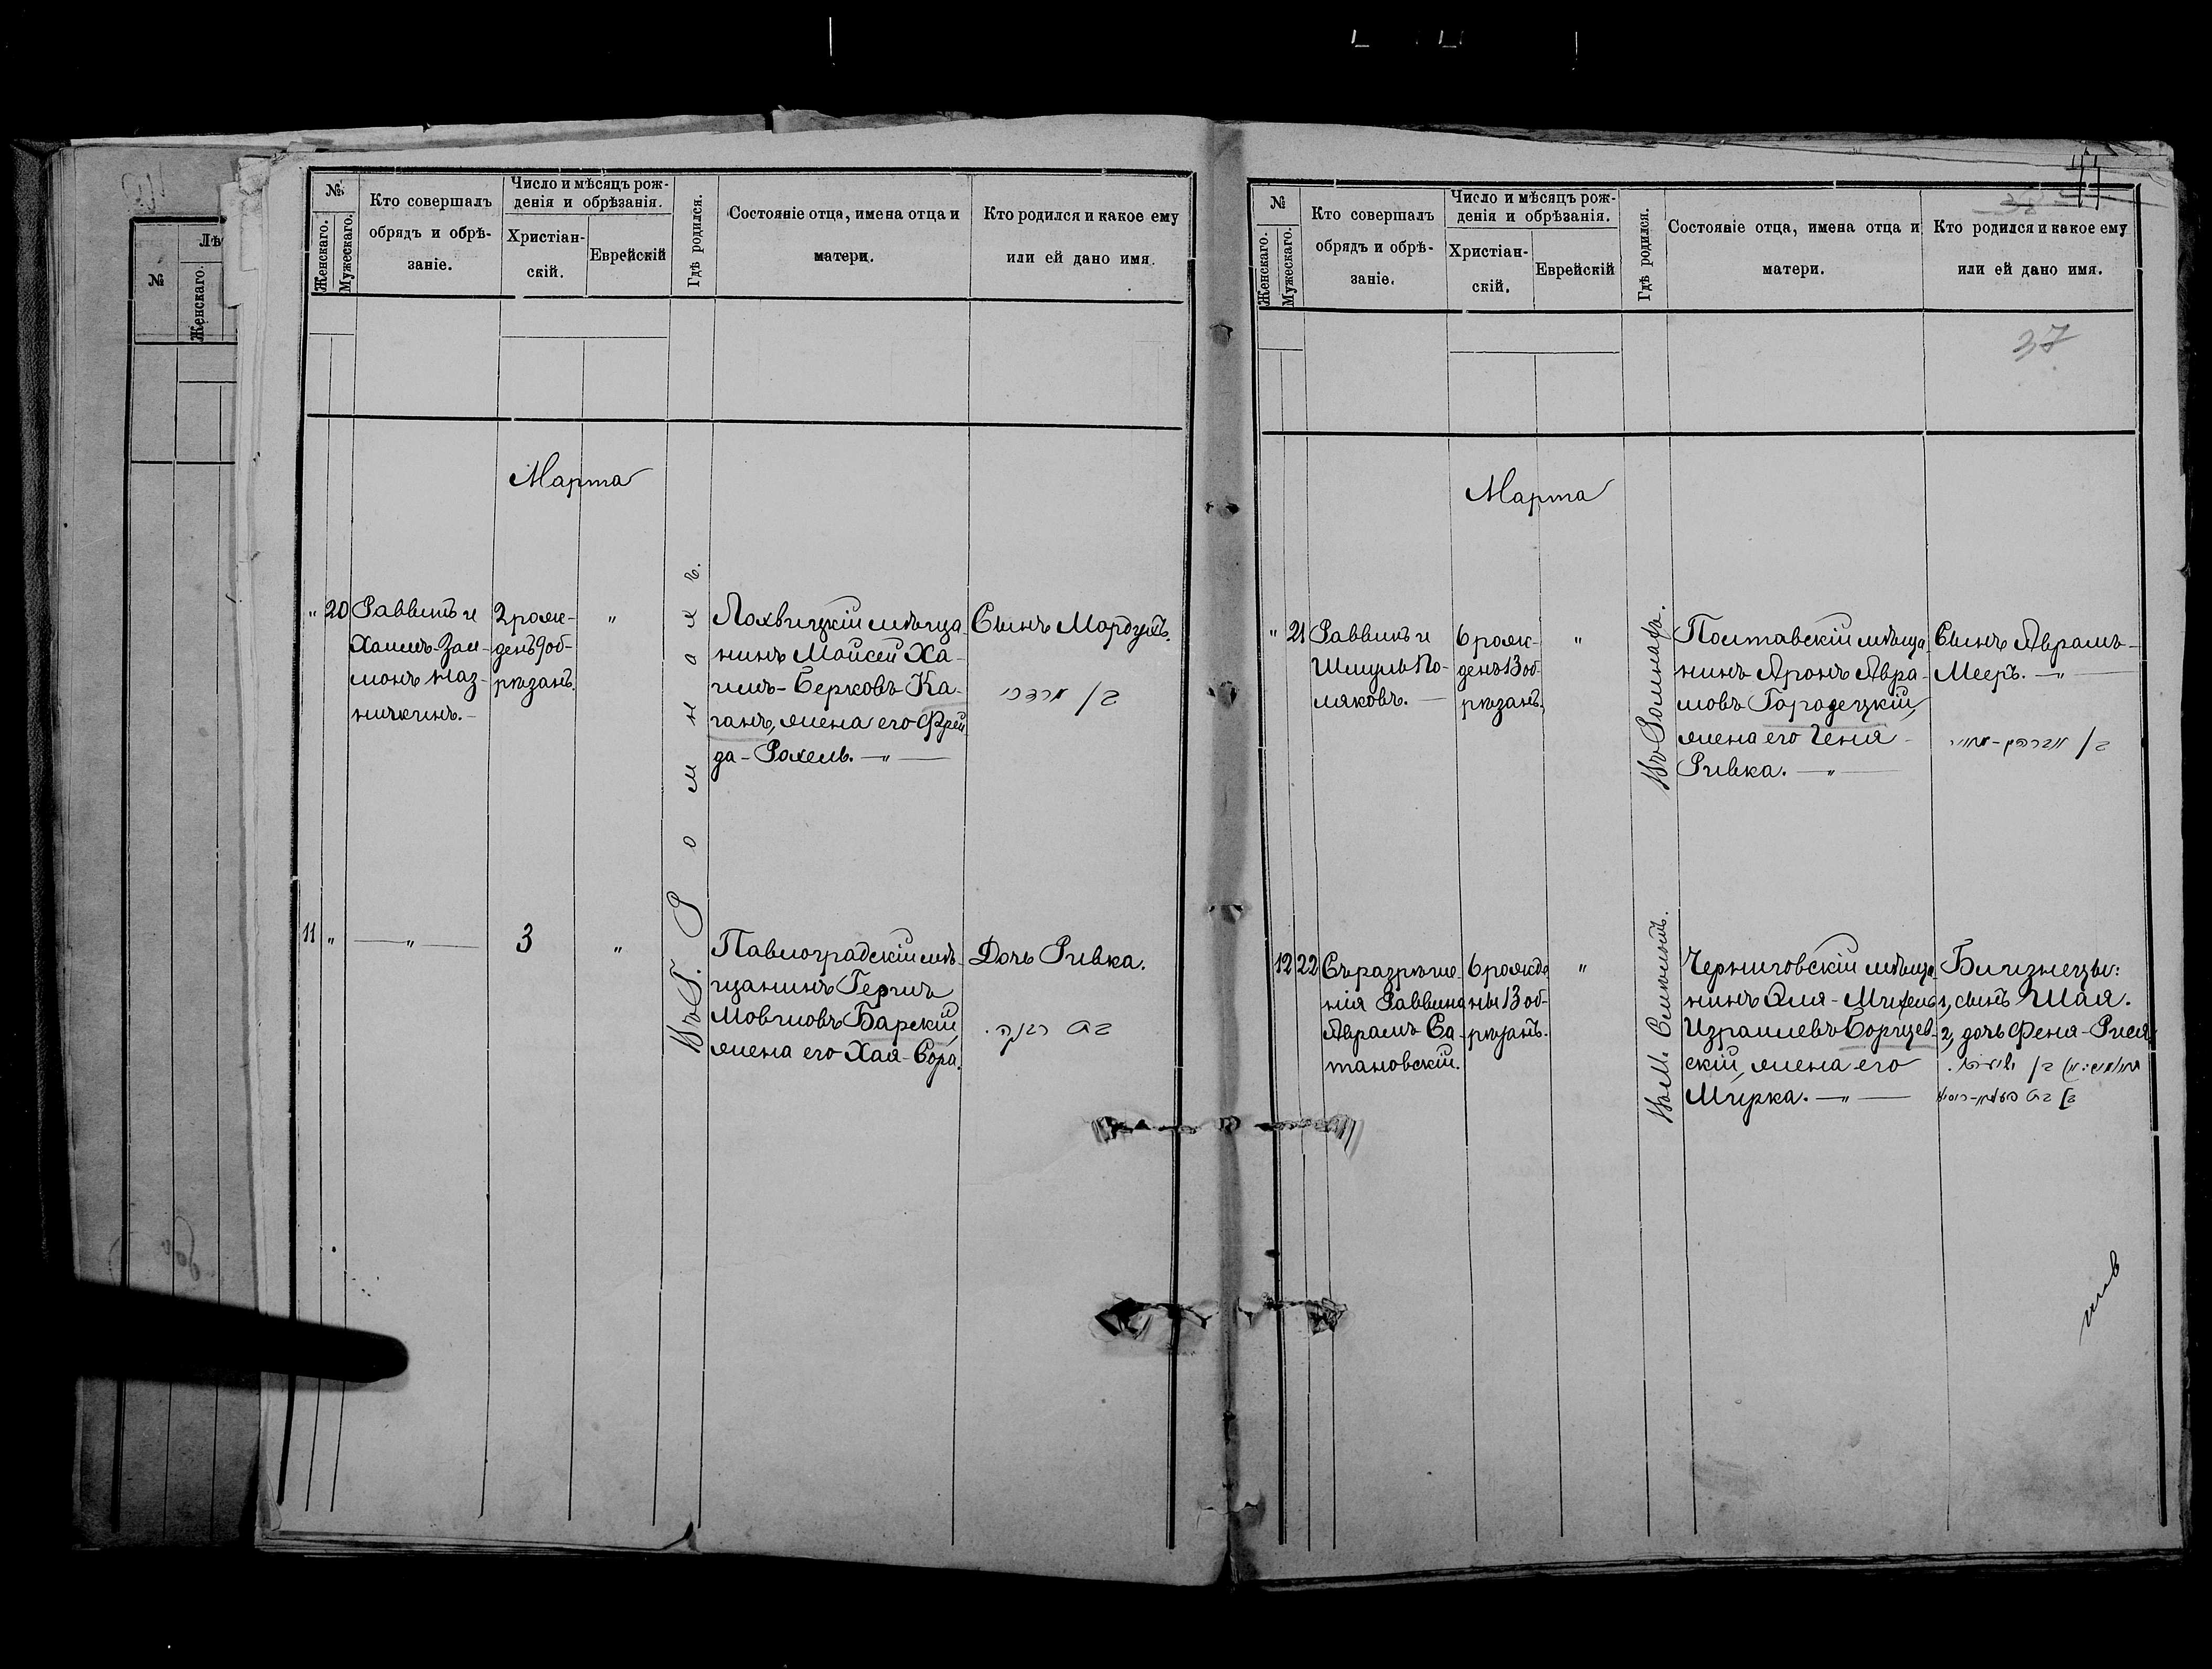 №
Женскаго.
Мужескаго.
Кто совершалъ
обрядъ и обрѣ-
заніе.
Число и мѣсяцъ рож-
денія и обрѣзанія.
Христіан-
скій.
Еврейскій
Гдѣ родился.
Состояніе отца, имена отца и
матери.
Кто родился и какое ему
или ей дано имя.
Марта
" 20
Раввинъ и
Хаимъ-Зал-
монъ Маз-
ничкинъ.-
2 рож-
денъ 9 об-
рѣзанъ.
"
Въ Г. Роменахъ.
Лохвицкій мѣща-
нинъ Мойсей Ха-
имъ-Берковъ Ка-
ганъ, жена его Фрей-
да-Рохель. —"—
Сынъ Мордухъ.
בן מרדכי
11 "
—"—
3
"
Павлоградскій мѣ-
щанинъ Гершъ
Мовшовъ Барскій,
жена его Хая-Сора.
Дочь Ривка.
בת רבקה.
№
Женскаго.
Мужескаго.
Кто совершалъ
обрядъ и обрѣ-
заніе.
Число и мѣсяцъ рож-
денія и обрѣзанія.
Христіан-
скій.
Еврейскій
Гдѣ родился.
Состояніе отца, имена отца и
матери.
Кто родился и какое ему
или ей дано имя.
37
Марта
" 21
Раввинъ и
Шмуль По-
ляковъ. —
6 рож-
денъ 13 об-
рѣзанъ.
"
Въ Роменахъ.
Полтавскій мѣща-
нинъ Аронъ Авра-
мовъ Городецкій,
жена его Геня-
Ривка. —"—
Сынъ Аврамъ-
Мееръ. —"—
בן אברהם-מאיר
12 22
Съ разрѣше-
нія Раввина
Аврамъ Са-
тановскій.
6 рожде-
ны 13 об-
рѣзанъ.
"
Черниговскій мѣща-
нинъ Эля-Михель
Израилевъ Борщев-
скій, жена его
Мирка. —"—
Близнецы:
1, сынъ Шая.
2, дочь Феня-Рися